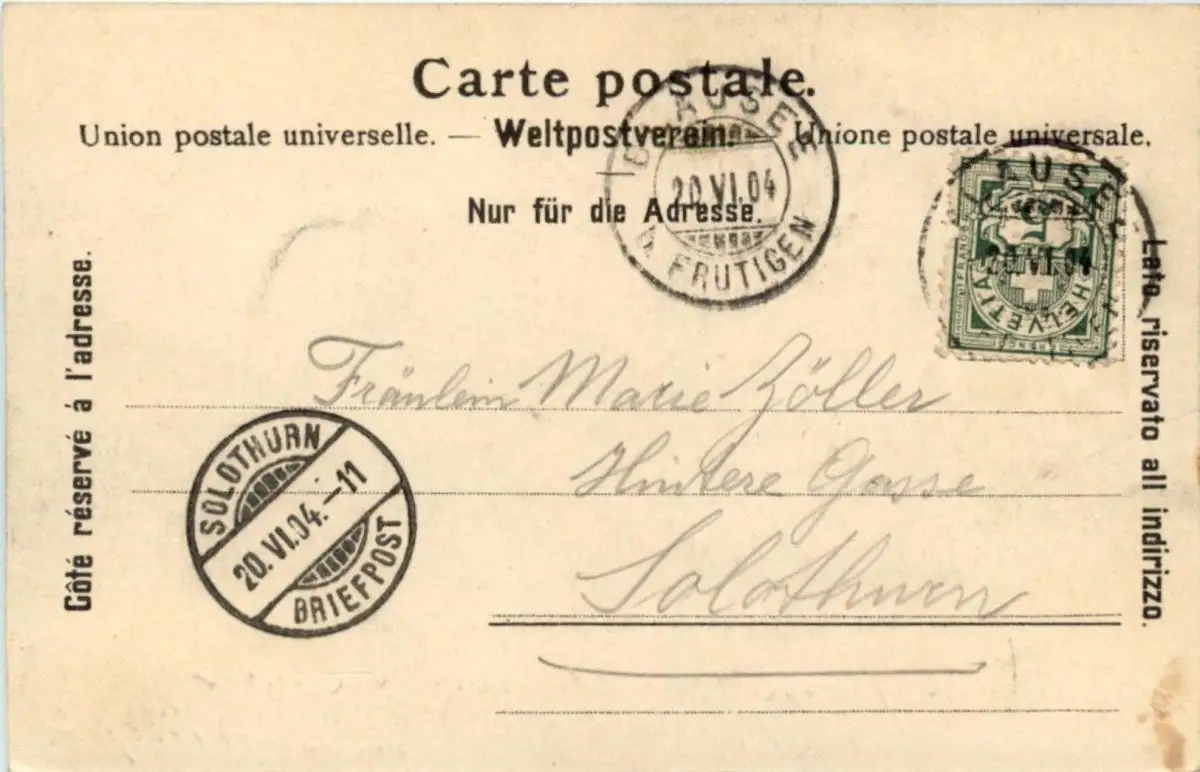 Carte postale.
Union postale universelle. — Weltpostverein. — Unione postale universale.
Nur für die Adresse.
BLAUSEE
20.VI.04
b. FRUTIGEN
LAUSEE
20.VI.04
HELVETIA
5
Côté réservé á l'adresse.
Lato riservato all indirizzo.
Fräulein Marie Zöller
Hintere Gasse
Solothurn
SOLOTHURN
20.VI.04.–11
BRIEFPOST